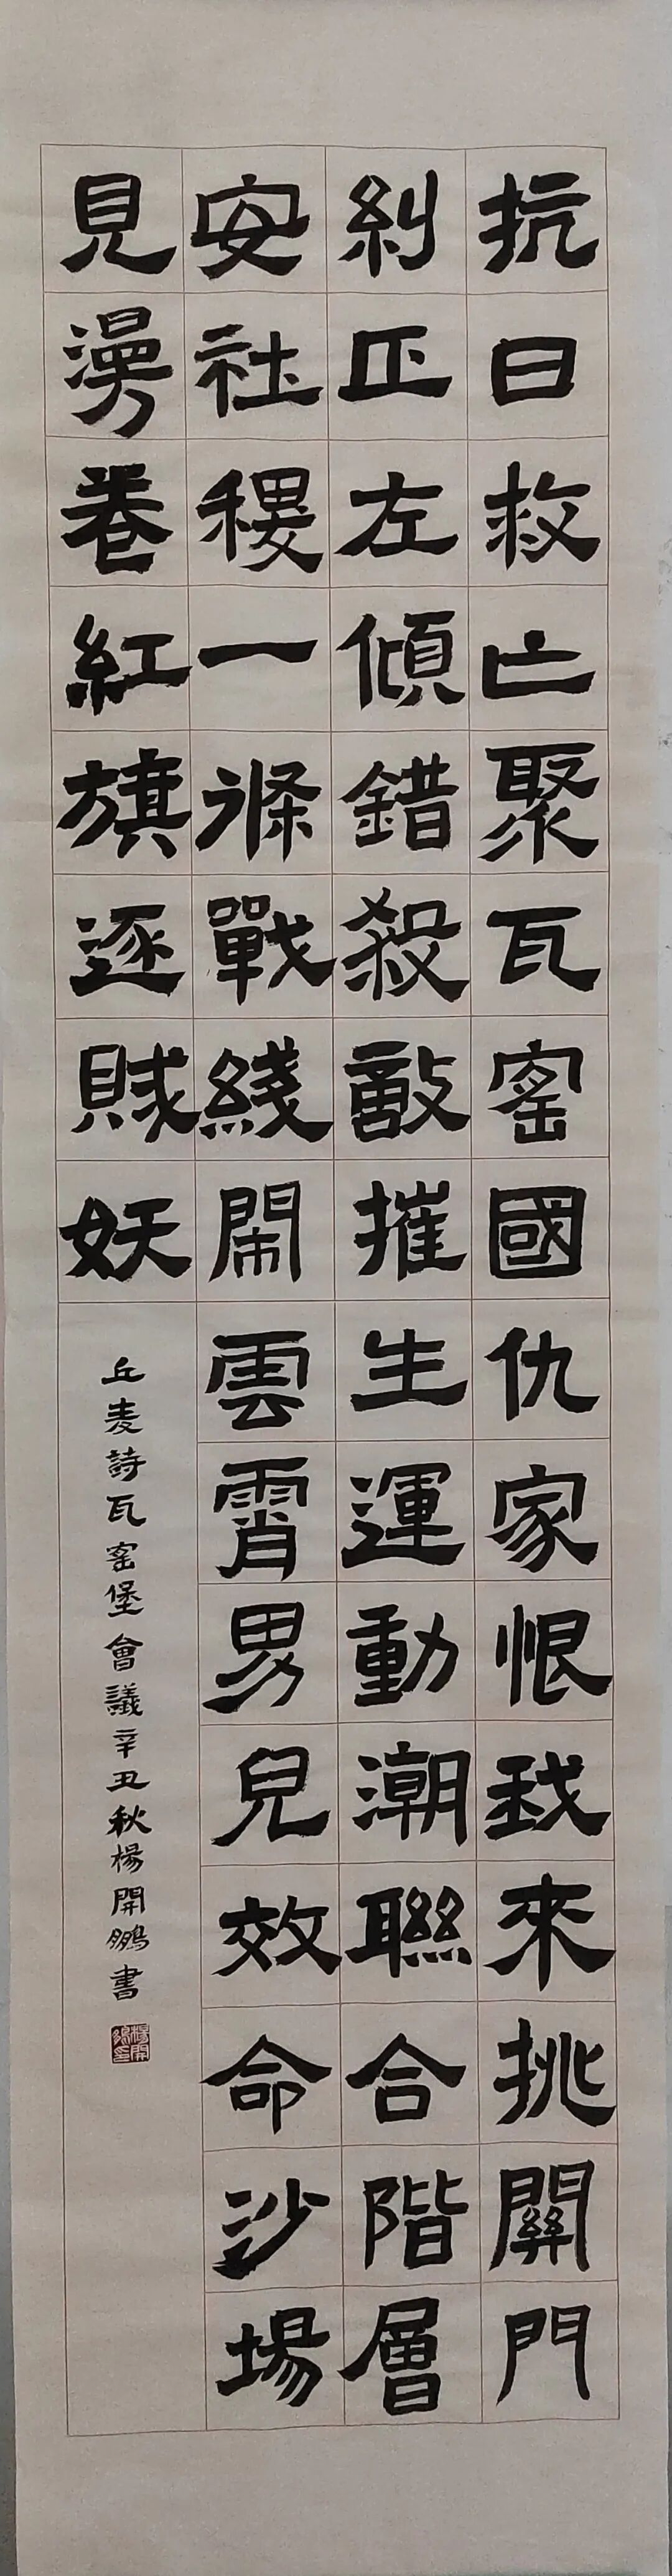 抗日救亡聚瓦窑國仇家恨我來挑關門
糾正左傾錯殺敵摧生運動潮聯合階層
安社稷一條戰綫鬧雲霄男兒效命沙場
見漫卷紅旗逐賊妖
丘麦詩瓦窑堡會議辛丑秋楊開鵬書
楊開鵬印